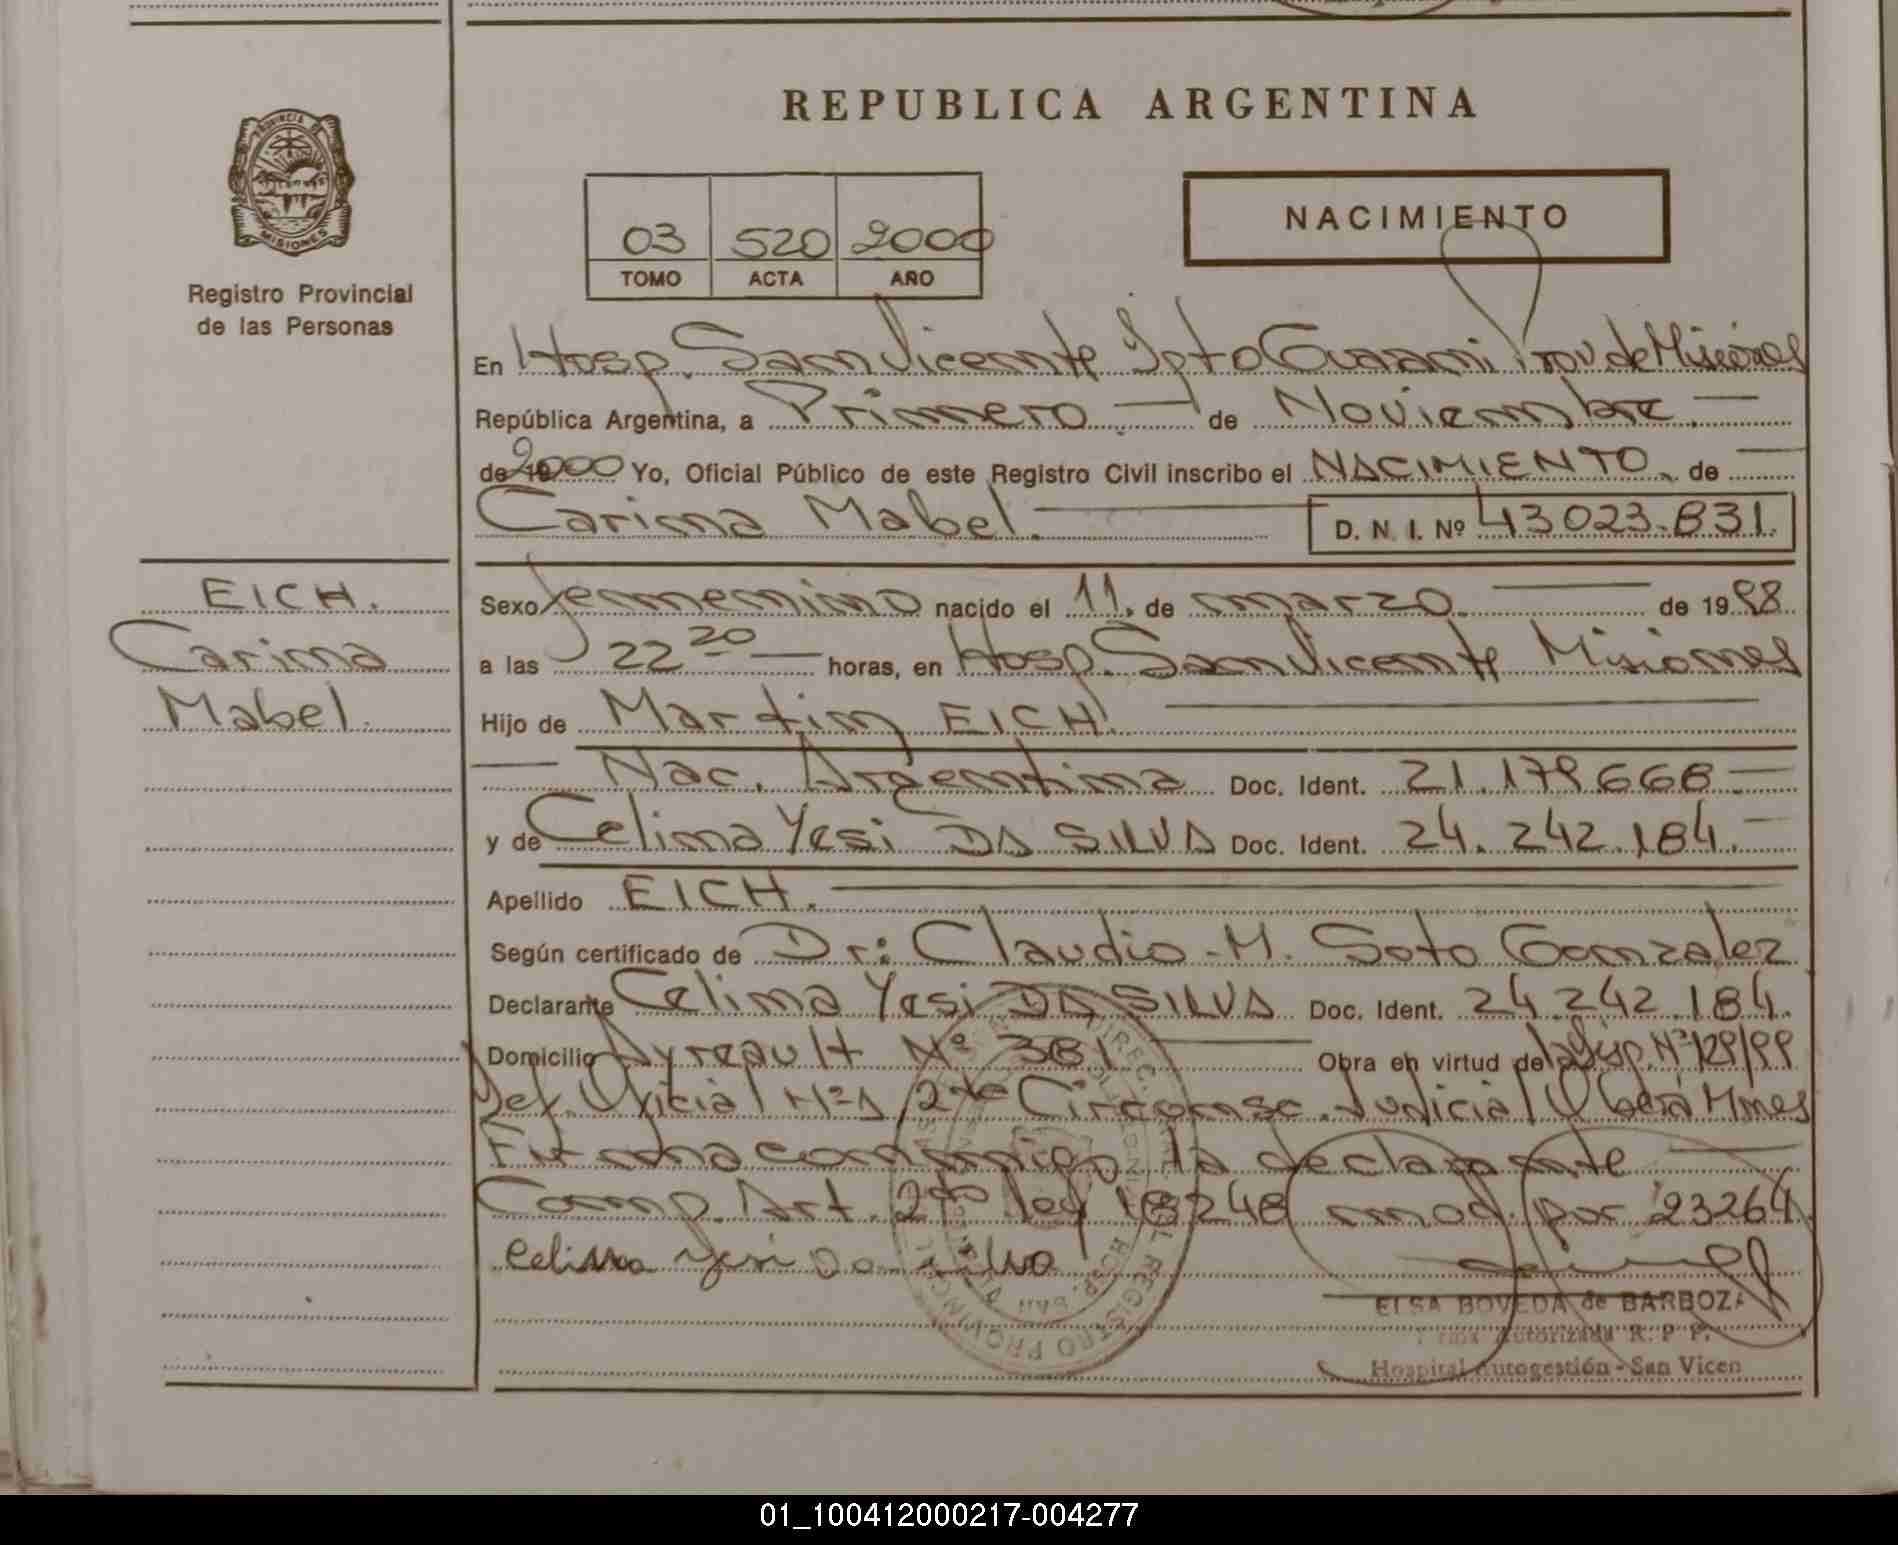 REPUBLICA ARGENTINA
PROVINCIA DE
MISIONES
Registro Provincial
de las Personas
03 520 2000
TOMO ACTA AÑO
NACIMIENTO
En Hosp. San Vicente Dpto Guarani Prov de Misiones
República Argentina, a Primero de Noviembre
de 2000 Yo, Oficial Público de este Registro Civil inscribo el NACIMIENTO, de
Carina Mabel.
D. N. I. Nº 43023.831.
EICH.
Carina
Mabel.
Sexo femenino nacido el 11. de marzo. de 1998
a las 22 20 horas, en Hosp. San Vicente Misiones
Hijo de Martin EICH.
Nac. Argentina Doc. Ident. 21.179.668
y de Celina Yesi DA SILVA Doc. Ident. 24.242.184.
Apellido EICH.
Según certificado de Dr: Claudio - M. Soto Gonzalez
Declarante Celina Yesi DA SILVA Doc. Ident. 24.242.184.
Domicilio Ayreault Nº 381 Obra en virtud de la Disp. Nº 129/99
Def. Oficial Nº 1 2da Circunsc. Judicial Oberá Mnes
Firma conmigo la declarante
Comp. Art. 2do ley 18248 mod. por 23264.
Celina Yesi Da Silva
ELSA BOVEDA de BARBOZA
Firma Autorizada R. P. P.
Hospital Autogestión - San Vicen
01_100412000217-004277